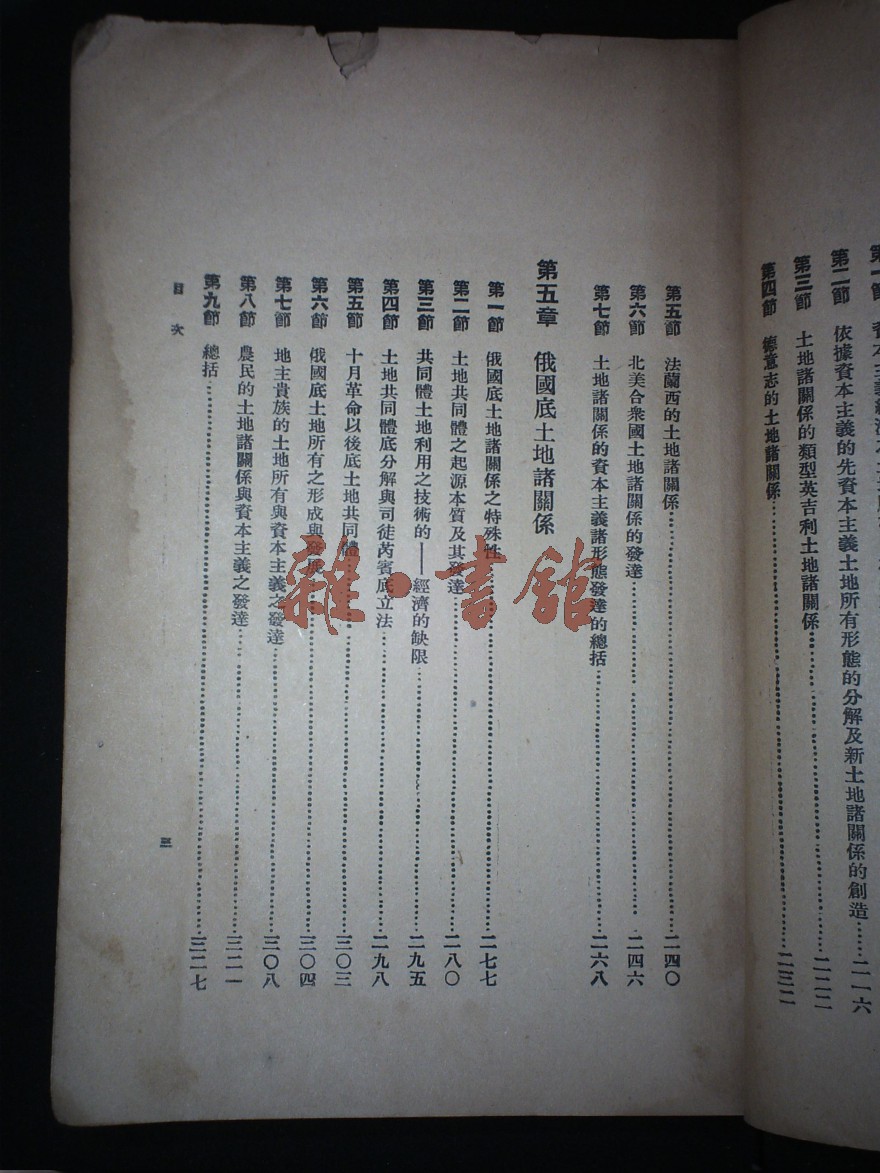 第二節　依據資本主義的先資本主義土地所有形態的分解及新土地諸關係的創造……二一六
第三節　土地諸關係的類型英吉利土地諸關係……二二二
第四節　德意志的土地諸關係……二三二
第五節　法蘭西的土地諸關係……二四〇
第六節　北美合衆國土地諸關係的發達……二四六
第七節　土地諸關係的資本主義諸形態發達的總括……二六八
第五章　俄國底土地諸關係
第一節　俄國底土地諸關係之特殊性……二七七
第二節　土地共同體之起源本質及其發達……二八〇
第三節　共同體土地利用之技術的——經濟的缺限……二九五
第四節　土地共同體底分解與司徒芮賓底立法……二九八
第五節　十月革命以後底土地共同體……三〇三
第六節　俄國底土地所有之形成與發展……三〇四
第七節　地主貴族的土地所有與資本主義之發達……三〇八
第八節　農民的土地諸關係與資本主義之發達……三二一
第九節　總括……三二七
目次
三
雜·書館